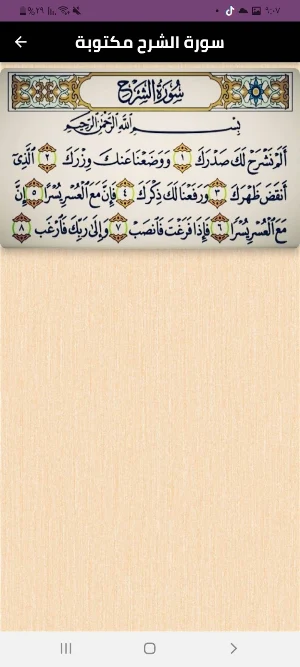 ٩:٠٧
٪٢٩
سورة الشرح مكتوبة
سُورَةُ الشَّرْحِ
بِسْمِ اللَّهِ الرَّحْمَٰنِ الرَّحِيمِ
أَلَمْ نَشْرَحْ لَكَ صَدْرَكَ ١ وَوَضَعْنَا عَنكَ وِزْرَكَ ٢ الَّذِي
أَنقَضَ ظَهْرَكَ ٣ وَرَفَعْنَا لَكَ ذِكْرَكَ ٤ فَإِنَّ مَعَ الْعُسْرِ يُسْرًا ٥ إِنَّ
مَعَ الْعُسْرِ يُسْرًا ٦ فَإِذَا فَرَغْتَ فَانصَبْ ٧ وَإِلَىٰ رَبِّكَ فَارْغَب ٨